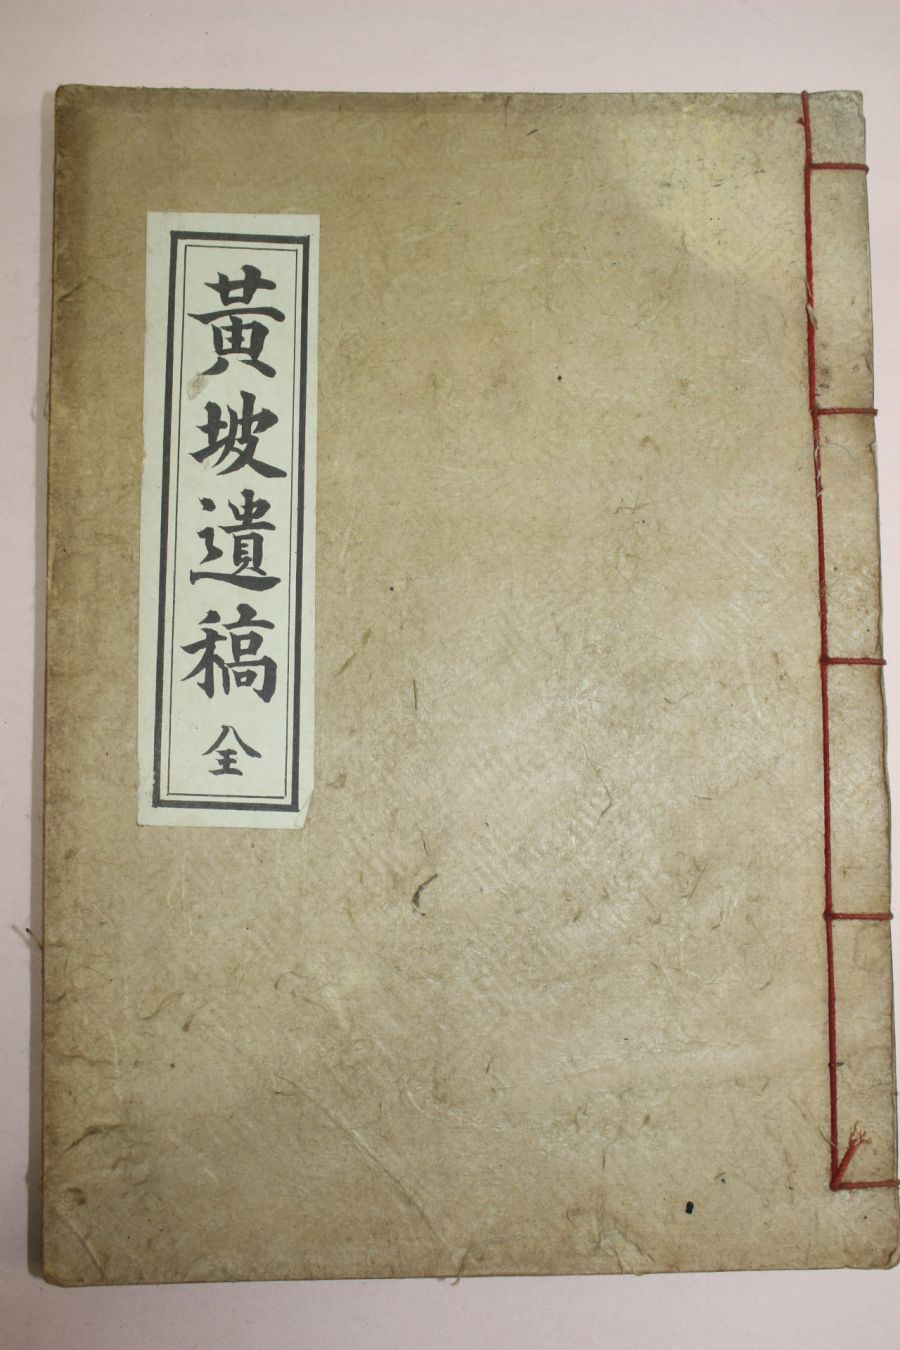 黃坡遺稿 全